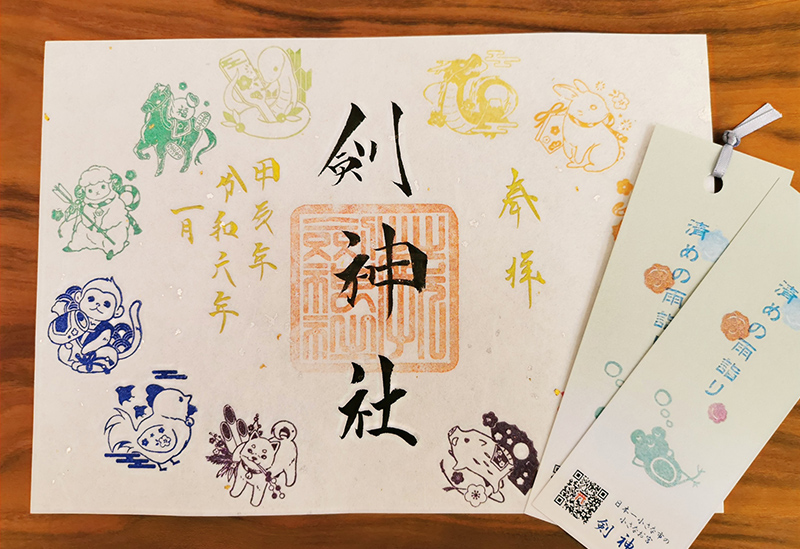 奉拝
剣神社
甲辰年
令和六年
一月
清めの雨詣
清めの雨詣り
日本一小さな市の
小さなお宮
剣神